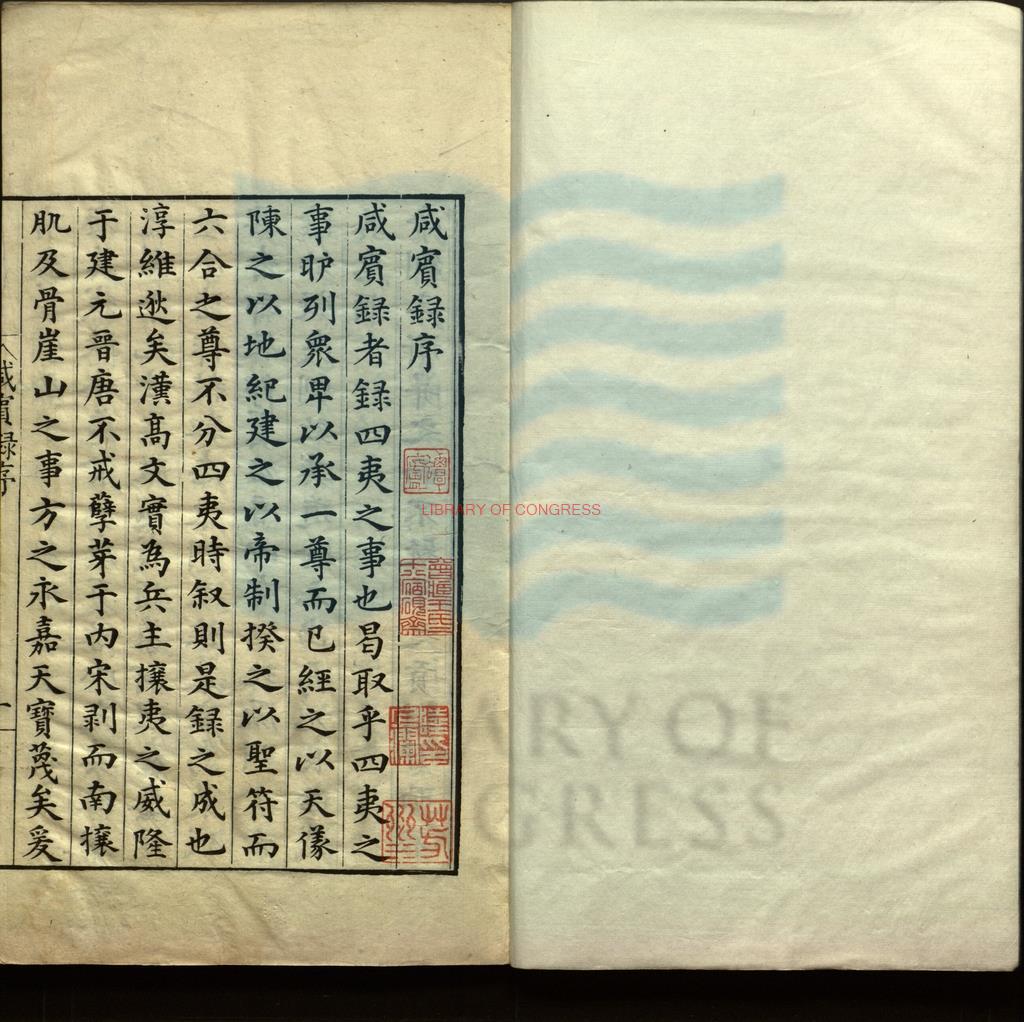 咸賓録序
咸賓録者録四夷之事也曷取乎四夷之
事昈列衆卑以承一尊而已經之以天㨾
陳之以地紀建之以帝制揆之以聖符而
六合之尊不分四夷時叙則是録之成也
淳維逖矣漢髙文實為兵主攘夷之威隆
于建元晉唐不戒孽芽于内宋剥而南攘
肌及骨崖山之事方之永嘉天寶蔑矣爰
咸賓録序
一
LIBRARY OF CONGRESS
RY OF
GRESS